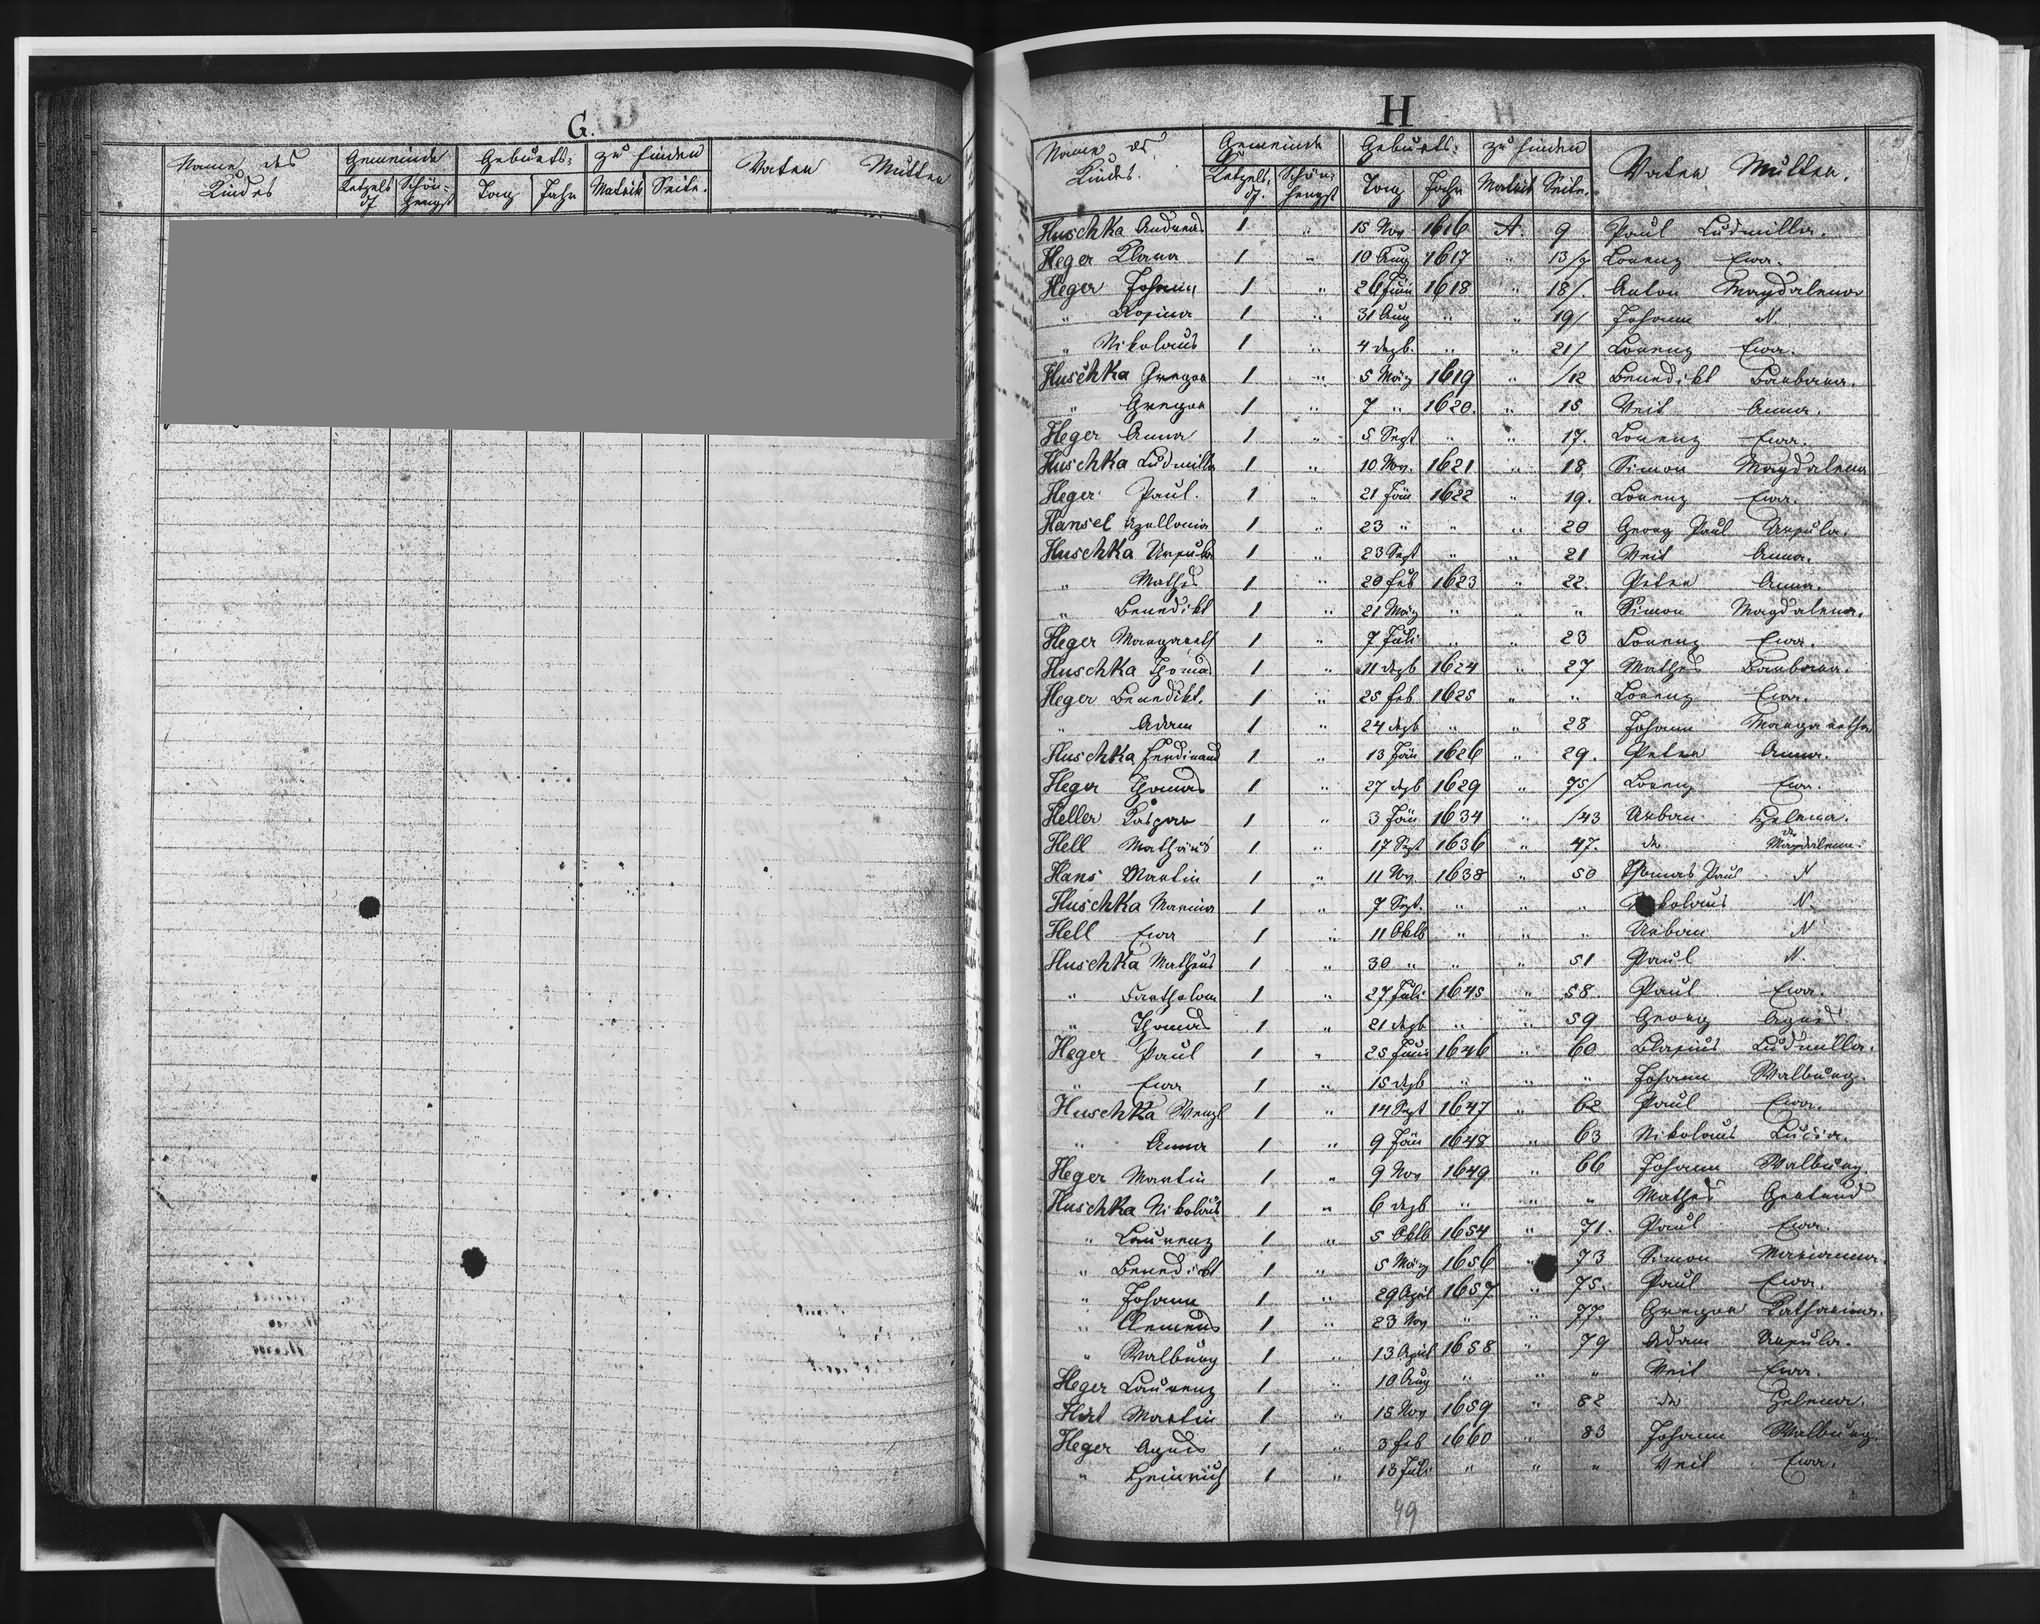 G.
Name des Kindes Gemeinde Geburts= zu finden Vater Mutter
Ketzelsdf Schönhengst Tag Jahr Matrik Seite.
H
Name des Kindes. Gemeinde Geburts= zu finden Vater Mutter.
Ketzelsdf. Schönhengst Tag Jahr Matrik Seite.
Huschka Andreas 1 " 15 Nov 1616 A. 9 Paul Ludmilla.
Heger Klara 1 " 10 Aug 1617 " 13/ Lorenz Eva.
Heger Johann 1 " 26 Juni 1618 " 18/. Anton Magdalena
" Rosina 1 " 31 Aug " " 19/ Johann N.
" Nikolaus 1 " 4 dezb. " " 21/ Lorenz Eva.
Huschka Gregor 1 " 5 März 1619 " /12 Benedikt Barbara.
" Gregor 1 " 7 " 1620. " 15 Veit Anna.
Heger Anna 1 " 5 Sept " " 17. Lorenz Eva.
Huschka Ludmilla 1 " 10 Nov. 1621 " 18 Simon Magdalena
Heger Paul. 1 " 21 Jän 1622 " 19. Lorenz Eva.
Hansel Apollonia 1 " 23 " " " 20 Georg Paul Ursula.
Huschka Ursula 1 " 23 Sept " " 21 Veit Anna.
" Mathes 1 " 20 feb 1623 " 22. Peter Anna.
" Benedikt 1 " 21 März " " " Simon Magdalena.
Heger Margareth 1 " 7 Juli " " 23 Lorenz Eva.
Huschka Thomas 1 " 11 dezb 1624 " 27 Mathes Barbara.
Heger Benedikt. 1 " 25 feb 1625 " " Lorenz Eva.
" Adam 1 " 24 dezb " " 28 Johann Margaretha
Huschka Ferdinand 1 " 13 Jän 1626 " 29. Peter Anna.
Heger Thomas 1 " 27 dezb 1629 " 75/ Lorenz Eva.
Heller Kaspar 1 " 3 Jän 1634 " /43 Urban Helena.
Hell Mathäus 1 " 17 Sept 1636 " 47. do Magdalena.
Hans Martin 1 " 11 Nov 1638 " 50 Thomas Paul N
Huschka Marina 1 " 7 Sept. " " " Nikolaus N.
Hell Eva 1 " 11 Oktb " " " Urban N
Huschka Matheus 1 " 30 " " " 51 Paul N.
" Bartholom 1 " 27 Juli 1645 " 58. Paul Eva.
" Thomas 1 " 21 dezb " " 59 Georg Agnes
Heger Paul 1 " 25 Juni 1646 " 60 Blasius Ludmilla.
" Eva 1 " 15 dezb " " " Johann Walburg.
Huschka Wenzl 1 " 14 Sept 1647 " 62 Paul Eva.
" Anna 1 " 9 Jän 1648 " 63 Nikolaus Lucia.
Heger Martin 1 " 9 Nov 1649 " 66 Johann Walburg.
Huschka Nikolaus 1 " 6 dezb " " " Mathes Gertrud
" Laurenz 1 " 5 Oktb 1654 " 71. Paul Eva.
" Benedikt 1 " 5 März 1656 " 73 Simon Marianna.
" Johann 1 " 29 April 1657 " 75. Paul Eva.
" Clemens 1 " 23 Nov " " 77. Gregor Katharina.
" Walburg 1 " 13 April 1658 " 79 Adam Ursula.
Heger Laurenz 1 " 10 Aug " " " Veit Eva.
Martin 1 " 15 Nov 1659 " 82 do Helena.
Heger Agnes 1 " 3 feb 1660 " 83 Johann Walburg.
" Heinrich 1 " 13 Juli " " " Veit Eva.
49